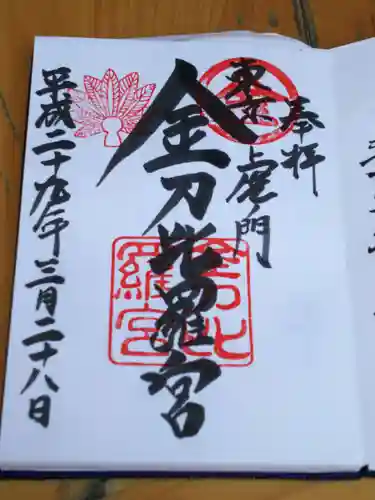 奉拝
東京
虎ノ門
金刀比羅宮
平成二十九年三月二十八日
金
金比
羅宮